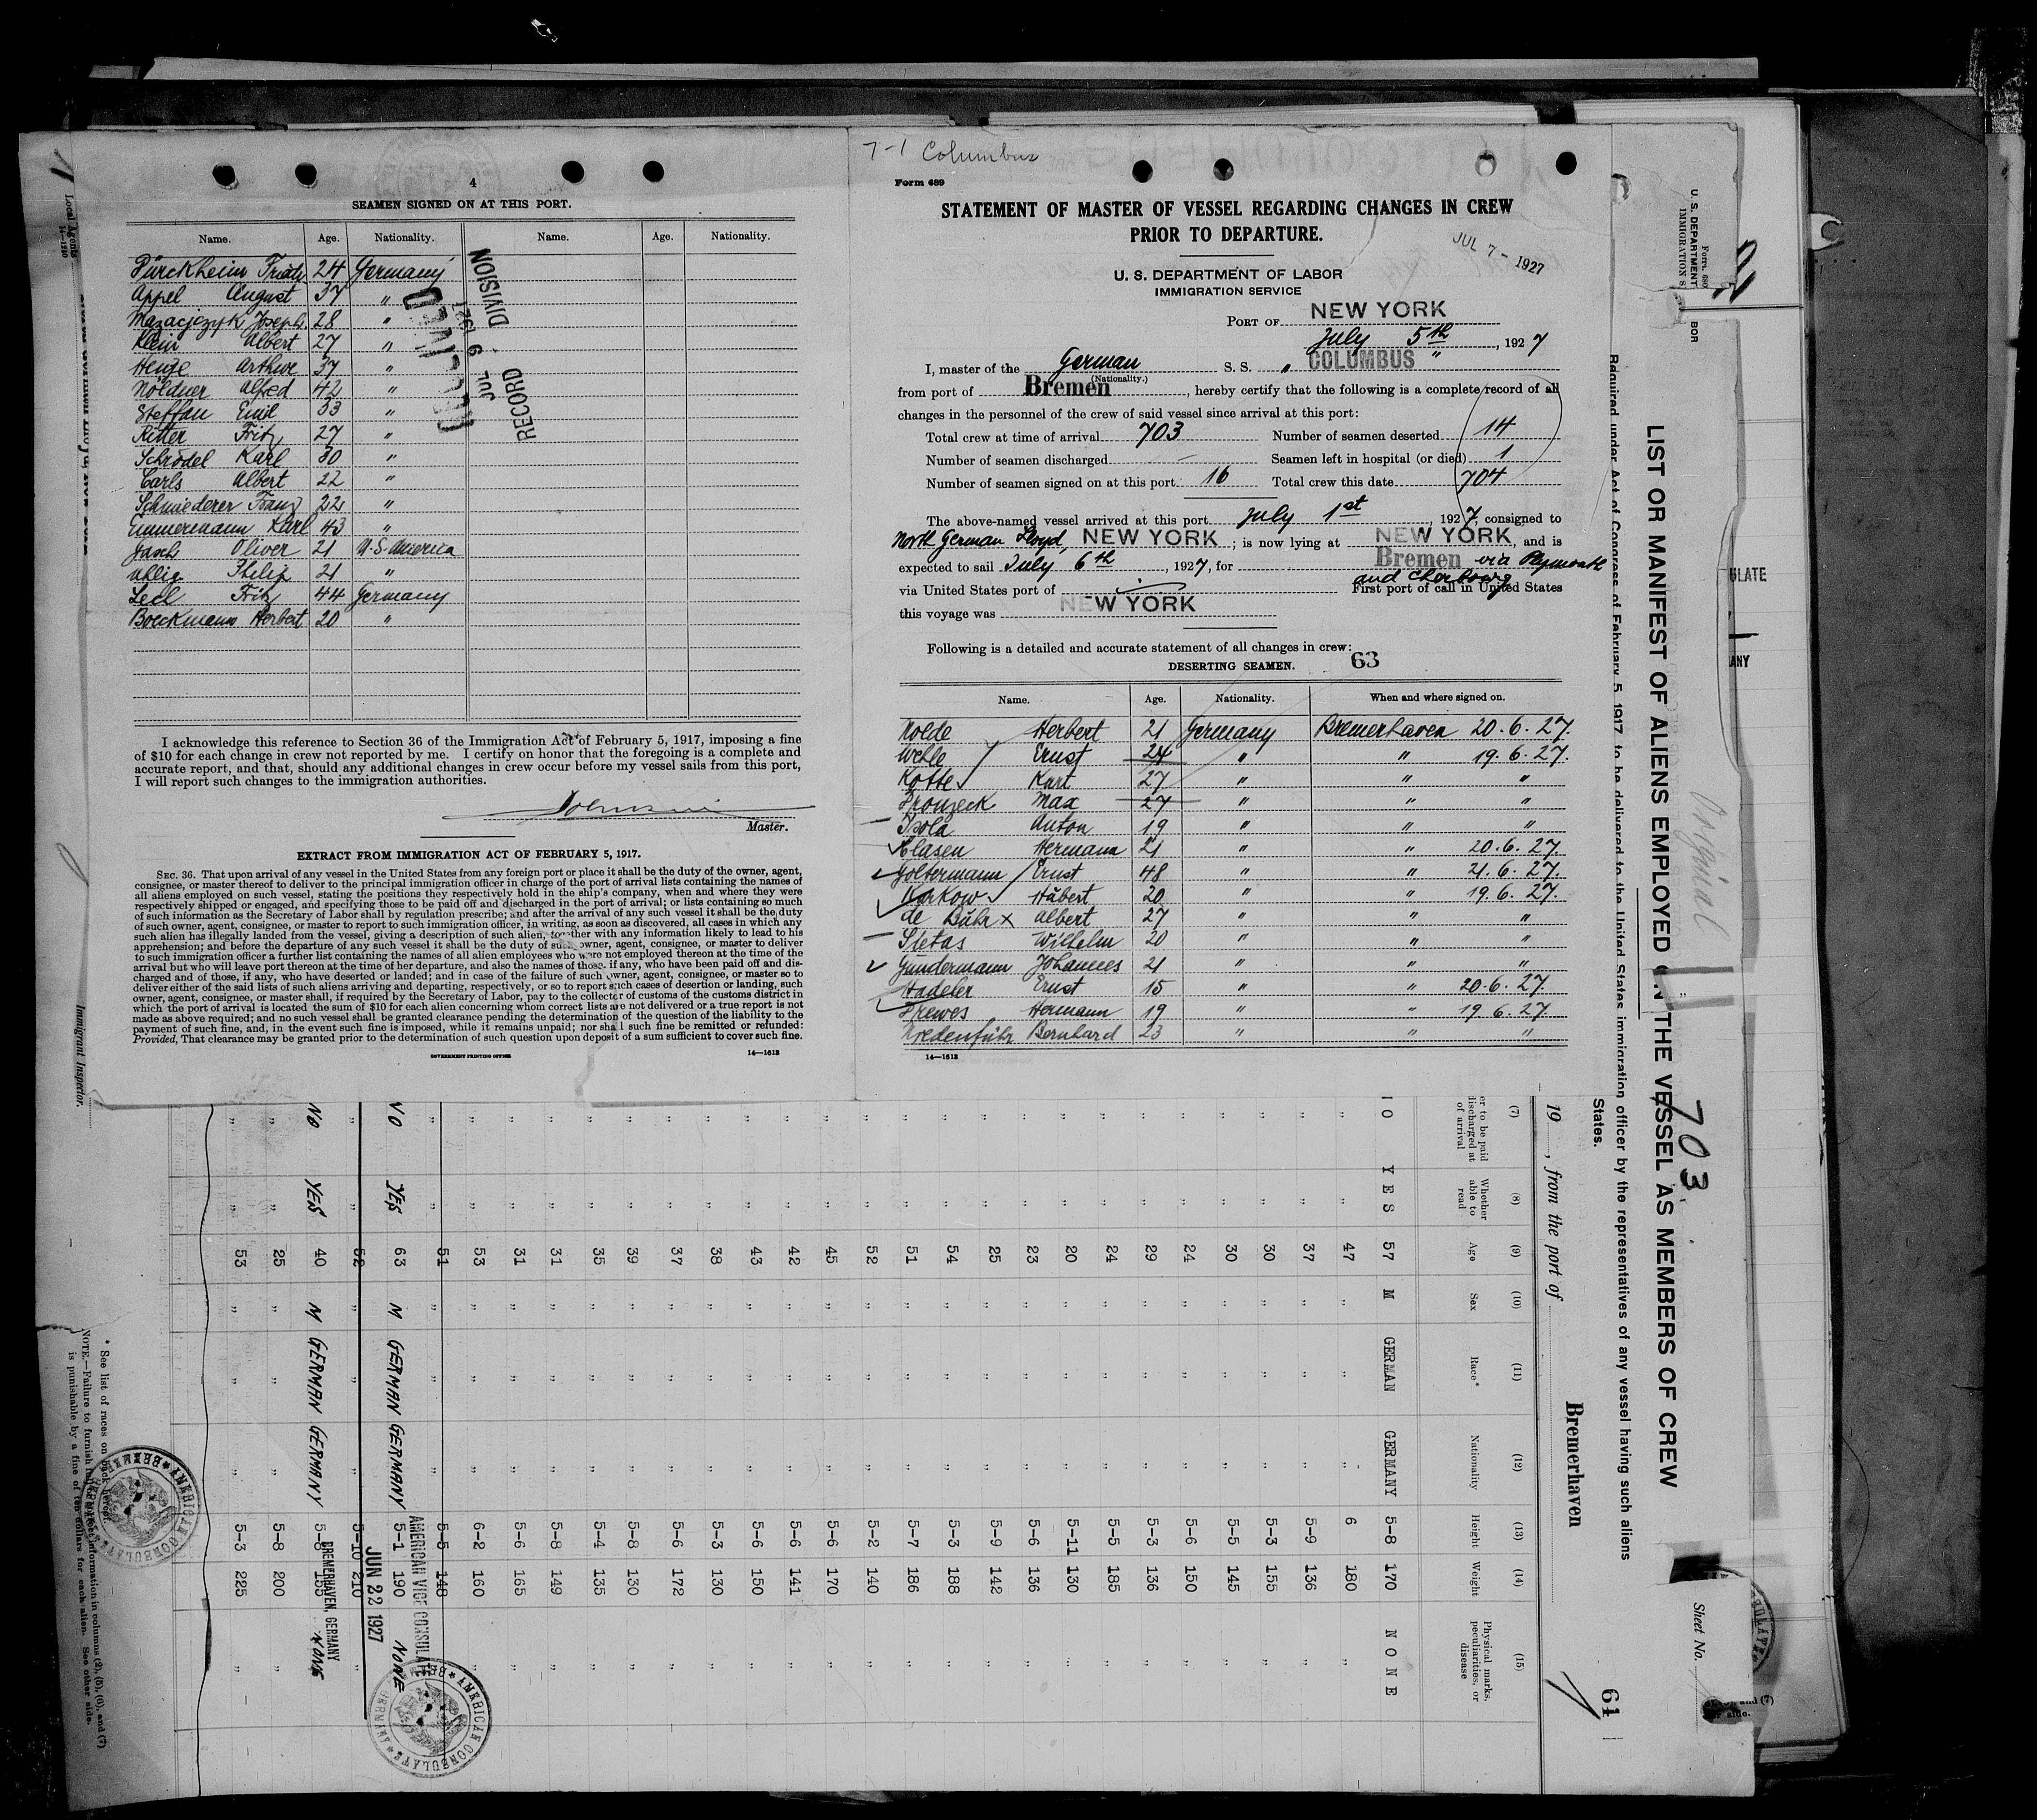 7-1 Columbus
4
SEAMEN SIGNED ON AT THIS PORT.
Name. Age. Nationality. Name. Age. Nationality.
24 Germany
Appel August 37 "
Joseph 28 "
Klein Albert 27 "
37 "
Nöldner Alfred 42 "
Steffan Emil 33 "
Ritter Fritz 27 "
Schrödel Karl 30 "
Carls Albert 22 "
Schmiederer Franz 22 "
Karl 43 "
Oliver 21 U.S. America
Philip 21 "
Fritz 44 Germany
Boeckmann Herbert 20 "
RECEIVED
JUL 6 1927
RECORD DIVISION
I acknowledge this reference to Section 36 of the Immigration Act of February 5, 1917, imposing a fine
of $10 for each change in crew not reported by me. I certify on honor that the foregoing is a complete and
accurate report, and that, should any additional changes in crew occur before my vessel sails from this port,
I will report such changes to the immigration authorities.
Master.
EXTRACT FROM IMMIGRATION ACT OF FEBRUARY 5, 1917.
SEC. 36. That upon arrival of any vessel in the United States from any foreign port or place it shall be the duty of the owner, agent,
consignee, or master thereof to deliver to the principal immigration officer in charge of the port of arrival lists containing the names of
all aliens employed on such vessel, stating the positions they respectively hold in the ship's company, when and where they were
respectively shipped or engaged, and specifying those to be paid off and discharged in the port of arrival; or lists containing so much
of such information as the Secretary of Labor shall by regulation prescribe; and after the arrival of any such vessel it shall be the duty
of such owner, agent, consignee, or master to report to such immigration officer, in writing, as soon as discovered, all cases in which any
such alien has illegally landed from the vessel, giving a description of such alien, together with any information likely to lead to his
apprehension; and before the departure of any such vessel it shall be the duty of such owner, agent, consignee, or master to deliver
to such immigration officer a further list containing the names of all alien employees who were not employed thereon at the time of the
arrival but who will leave port thereon at the time of her departure, and also the names of those, if any, who have been paid off and dis-
charged and of those, if any, who have deserted or landed; and in case of the failure of such owner, agent, consignee, or master so to
deliver either of the said lists of such aliens arriving and departing, respectively, or so to report such cases of desertion or landing, such
owner, agent, consignee, or master shall, if required by the Secretary of Labor, pay to the collector of customs of the customs district in
which the port of arrival is located the sum of $10 for each alien concerning whom correct lists are not delivered or a true report is not
made as above required; and no such vessel shall be granted clearance pending the determination of the question of the liability to the
payment of such fine, and, in the event such fine is imposed, while it remains unpaid; nor shall such fine be remitted or refunded:
Provided, That clearance may be granted prior to the determination of such question upon deposit of a sum sufficient to cover such fine.
GOVERNMENT PRINTING OFFICE 14—1613
Form 689
STATEMENT OF MASTER OF VESSEL REGARDING CHANGES IN CREW
PRIOR TO DEPARTURE.
JUL 7 - 1927
U. S. DEPARTMENT OF LABOR
IMMIGRATION SERVICE
PORT OF NEW YORK
July 5th, 1927
I, master of the German S. S. " COLUMBUS "
(Nationality.)
from port of Bremen, hereby certify that the following is a complete record of all
changes in the personnel of the crew of said vessel since arrival at this port:
Total crew at time of arrival 703 Number of seamen deserted 14
Number of seamen discharged — Seamen left in hospital (or died) 1
Number of seamen signed on at this port 16 Total crew this date 704
The above-named vessel arrived at this port July 1st, 1927, consigned to
North German Lloyd, NEW YORK; is now lying at NEW YORK, and is
expected to sail July 6th, 1927, for Bremen via Plymouth
and Cherbourg
via United States port of First port of call in United States
this voyage was NEW YORK
Following is a detailed and accurate statement of all changes in crew:
DESERTING SEAMEN. 63
Name. Age. Nationality. When and where signed on.
Nolde Herbert 21 Germany Bremerhaven 20.6.27.
Wehle Ernst 24 " " 19.6.27.
Kotte Karl 27 " " "
Max 27 " " "
Anton 19 " " "
Clasen Hermann 21 " " 20.6.27.
Goltermann Ernst 48 " " 21.6.27.
Korkow 20 " " 19.6.27.
de Bühr x Albert 27 " " "
Sietas Wilhelm 20 " " "
Gundermann Johannes 21 " " "
Hadeler Ernst 15 " " 20.6.27.
Drewes Hermann 19 " " 19.6.27.
Bernhard 23 " " "
14—1613
LIST OR MANIFEST OF ALIENS EMPLOYED ON THE VESSEL AS MEMBERS OF CREW
Original
703
Required under Act of Congress of February 5, 1917, to be delivered to the United States immigration officer by the representatives of any vessel having such aliens
States.
19 , from the port of Bremerhaven
61
Sheet No.
(7) (8) (9) (10) (11) (12) (13) (14) (15)
er to be paid discharged at of arrival
Whether able to read
Age
Sex
Race*
Nationality
Height
Weight
Physical marks, peculiarities, or disease
YES 57 M GERMAN GERMANY 5-8 170 NONE
" " 47 " " " 6 180 "
" " 37 " " " 5-9 136 "
" " 30 " " " 5-3 155 "
" " 30 " " " 5-5 145 "
" " 24 " " " 5-6 150 "
" " 29 " " " 5-3 136 "
" " 24 " " " 5-5 185 "
" " 20 " " " 5-11 130 "
" " 23 " " " 5-6 136 "
" " 25 " " " 5-9 142 "
" " 54 " " " 5-3 188 "
" " 51 " " " 5-7 186 "
" " 52 " " " 5-2 140 "
" " 45 " " " 5-6 170 "
" " 42 " " " 5-6 141 "
" " 43 " " " 5-6 150 "
" " 38 " " " 5-3 130 "
" " 37 " " " 5-6 172 "
" " 39 " " " 5-8 130 "
" " 35 " " " 5-4 135 "
" " 31 " " " 5-8 149 "
" " 31 " " " 5-6 165 "
" " 53 " " " 6-2 160 "
" " 51 " " " 5-5 148
NO YES 63 M GERMAN GERMANY 5-1 190 NONE
" " 52 " " " 5-10 210 "
NO YES 40 M GERMAN GERMANY 5-8 155 NONE
" " 25 " " " 5-8 200 "
" " 53 " " " 5-3 225 "
AMERICAN VICE CONSULATE
JUN 22 1927
BREMERHAVEN, GERMANY
* See list of races on back hereof.
Immigrant Inspector.
Local Agents